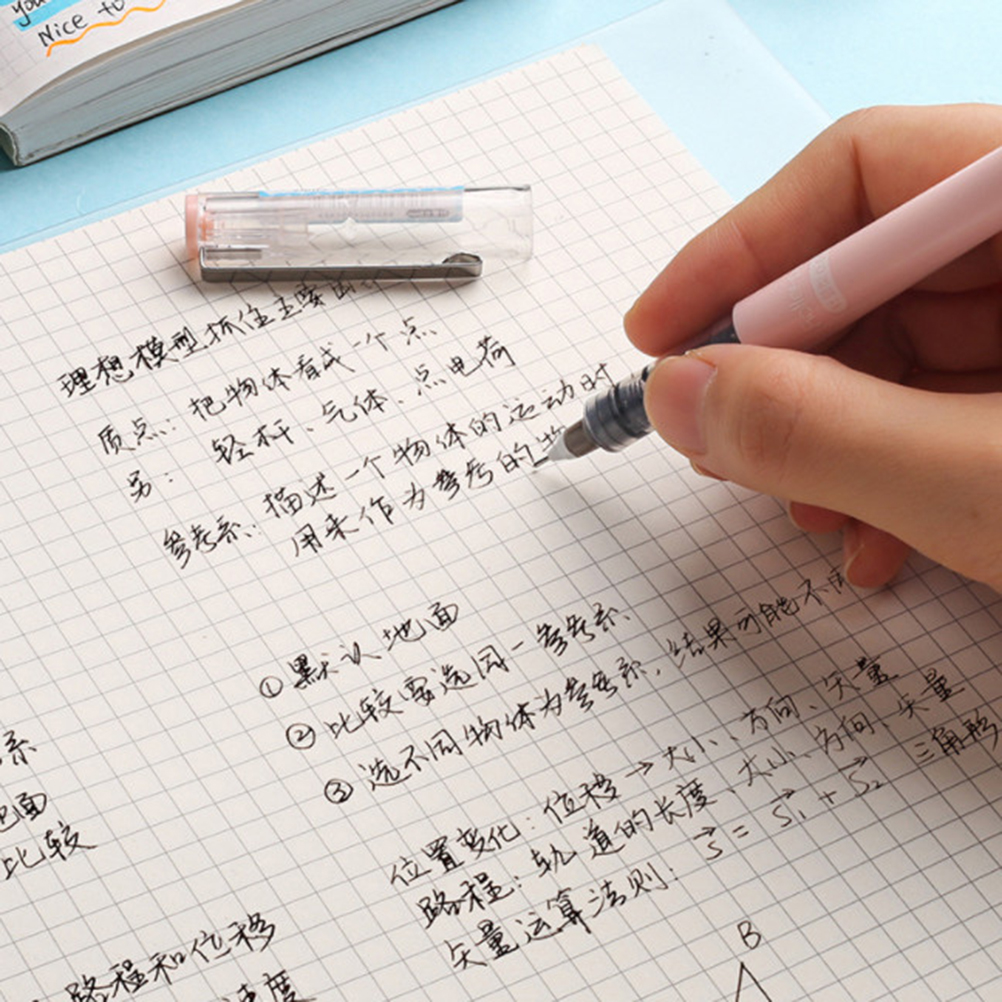 you
Nice to
理想模型抓住主要
质点：把物体看成一个点
另：轻杆、气体、点电荷
参考系：描述一个物体的运动时
用来作为参考的物
①默认地面
②比较要选同一参考系
③选不同物体为参考系，结果可能不同
位置变化：位移→大小、方向、矢量
路程：轨道的长度、大小、方向、矢量
矢量运算法则：S = S₁ + S₂ 三角形
B
系
地面
比较
路程和位移
速度